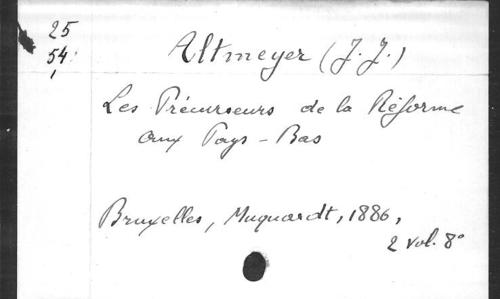 25
54
Altmeyer (J. J.)
Les Précurseurs de la Réforme
aux Pays-Bas
Bruxelles, Muquardt, 1886,
2 vol. 8°